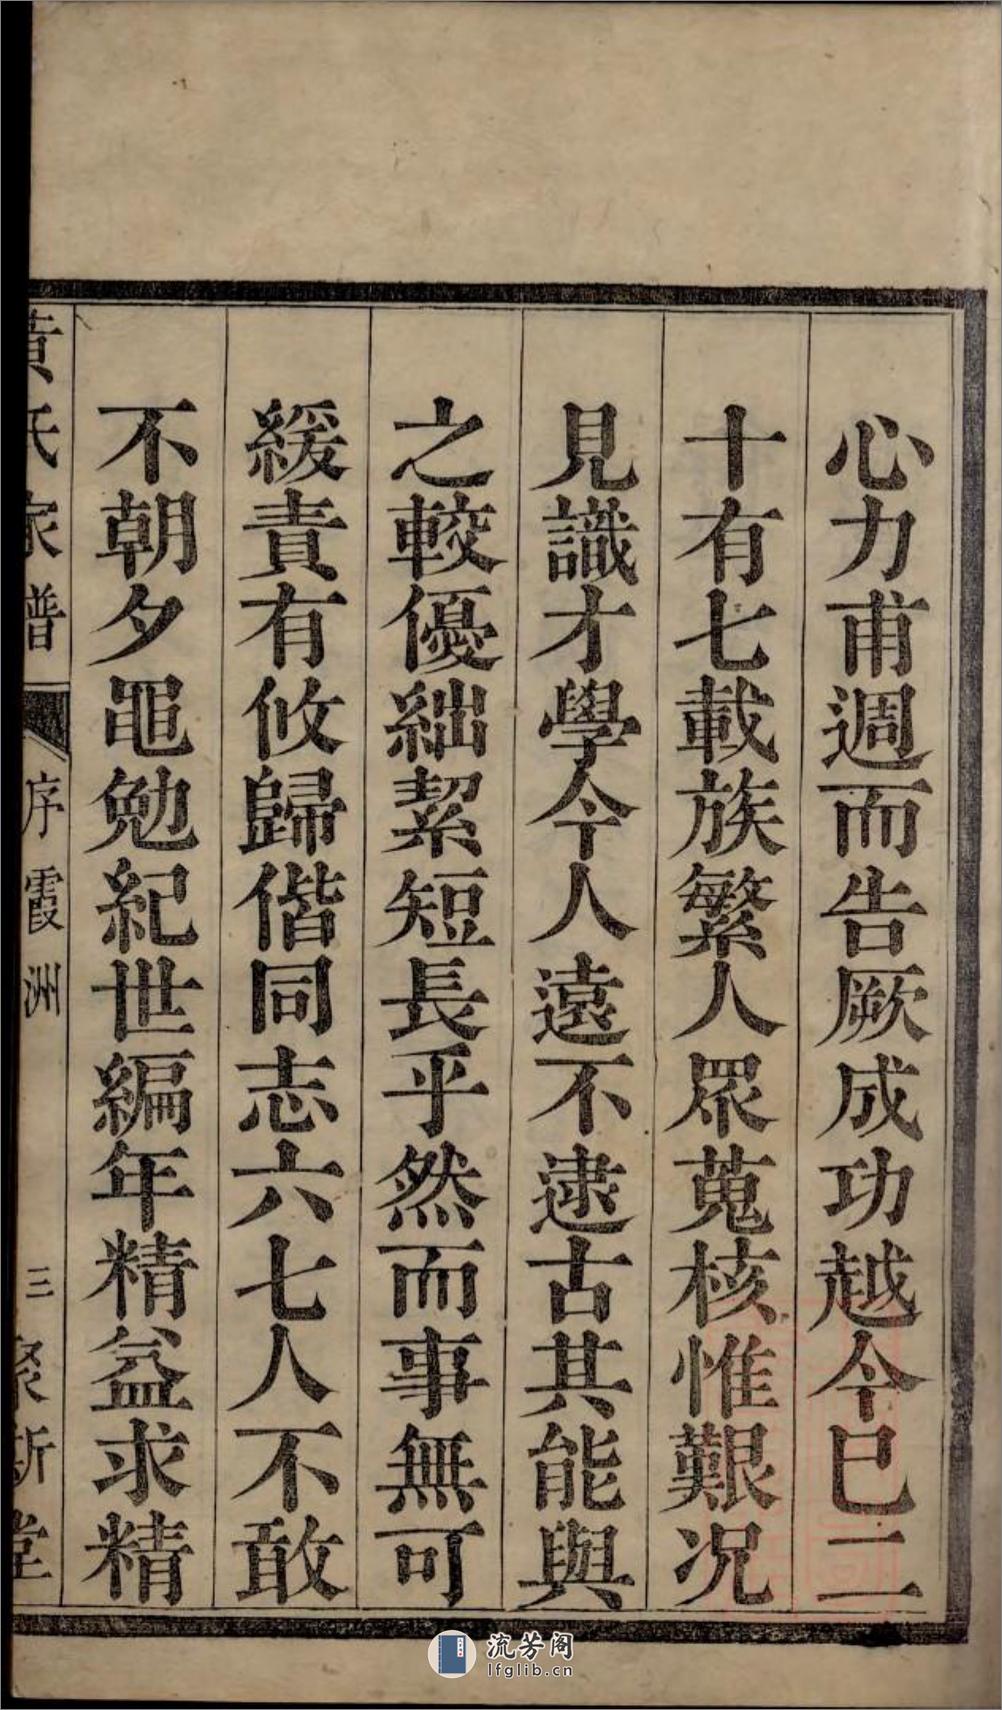 心力甫週而告厥成功越今巳二
十有七載族繁人眾蒐核惟艱况
見識才學今人遠不逮古其能與
之較優絀絜短長乎然而事無可
緩責有攸歸偕同志六七人不敢
不朝夕黽勉紀世編年精益求精
黃氏家譜
序霞洲
三
聚斯堂
流芳阁
lfglib.cn